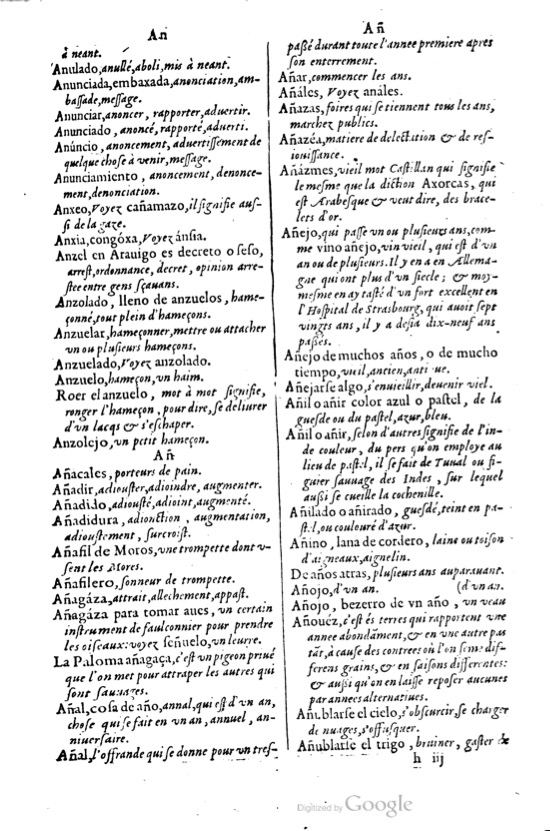 An
à neant.
Anulado, anullé, aboli, mis à neant.
Anunciada, embaxada, anonciation, am-
bassade, message.
Anunciar, anoncer, rapporter, advertir.
Anunciado, anoncé, rapporté, adverti.
Anúncio, anoncement, advertissement de
quelque chose à venir, message.
Anunciamiento, anoncement, denonce-
ment, denonciation.
Anxeo, Voyez cañamazo, il signifie aus-
si de la gaze.
Anxia, congóxa, Voyez ánsia.
Anzel en Arauigo es decreto o seso,
arrest, ordonnance, decret, opinion arre-
stee entre gens sçauans.
Anzolado, lleno de anzuelos, hame-
çonné, tout plein d'hameçons.
Anzuelar, hameçonner, mettre ou attacher
vn ou plusieurs hameçons.
Anzuelado, Voyez anzolado.
Anzuelo, hameçon, vn haim.
Roer el anzuelo, mot à mot signifie,
ronger l'hameçon, pour dire, se deliurer
d'vn lacqs & s'eschaper.
Anzolejo, vn petit hameçon.
Añ
Añacales, porteurs de pain.
Añadir, adiouster, adioindre, augmenter.
Añadido, adiousté, adioint, augmenté.
Añadidura, adionction, augmentation,
adioustement, surcroist.
Añafil de Moros, vne trompette dont v-
sent les Mores.
Añafilero, sonneur de trompette.
Añagáza, attrait, allechement, appast.
Añagáza para tomar aues, vn certain
instrument de faulconnier pour prendre
les oiseaux: voyez señuelo, vn leurre.
La Paloma añagaça, c'est vn pigeon priué
que l'on met pour attraper les autres qui
sont sauuages.
Añal, cosa de año, annal, qui est d'vn an,
chose qui se fait en vn an, annuel, an-
niuersaire.
Añal, l'offrande qui se donne pour vn tres-
Añ
passé durant toute l'annee premiere apres
son enterrement.
Añar, commencer les ans.
Añáles, Voyez análes.
Añazas, foires qui se tiennent tous les ans,
marchez publics.
Añazéa, matiere de delectation & de res-
iouissance.
Añázmes, vieil mot Castillan qui signifie
le mesme que la diction Axorcas, qui
est Arabesque & veut dire, des brace-
lets d'or.
Añejo, qui passe vn ou plusieurs ans, com-
me vino añejo, vin vieil, qui est d'vn
an ou de plusieurs. Il y en a en Allema-
gne qui ont plus d'vn siecle; & moy-
mesme en ay tasté d'vn fort excellent en
l'Hospital de Strasbourg, qui auoit sept
vingts ans, il y a desia dix-neuf ans
passés.
Añejo de muchos años, o de mucho
tiempo, vieil, ancien,
Añejarse algo, s'enuieillir, deuenir viel.
Añil o añir color azul o pastel, de la
guesde ou du pastel, azur, bleu.
Añil o añir, selon d'autres signifie de l'in-
de couleur, du pers qu'on employe au
lieu de pastel, il se fait de Tunal ou fi-
guier sauuage des Indes, sur lequel
aussi se cueille la cochenille.
Añilado o añirado, guesdé, teint en pa-
stel, ou couloure d'azur.
Añino, lana de cordero, laine ou toison
d'aigneaux, aignelin.
De años atras, plusieurs ans auparauant.
Añojo, d'vn an. (d'vn an.
Añojo, bezerro de vn año, vn veau
Añouez, c'est és terres qui rapportent vne
annee abondãment, & en vne autre pas
tãt, à cause des contrees où l'on seme dif-
ferens grains, & en saisons differentes:
& aussi qu'on en laisse reposer aucunes
par annees alternatiues.
Añublarse el cielo, s'obscurcir, se charger
de nuages, s'offusquer.
Añublarse el trigo, bruiner, gaster &
h iij
Digitized by Google